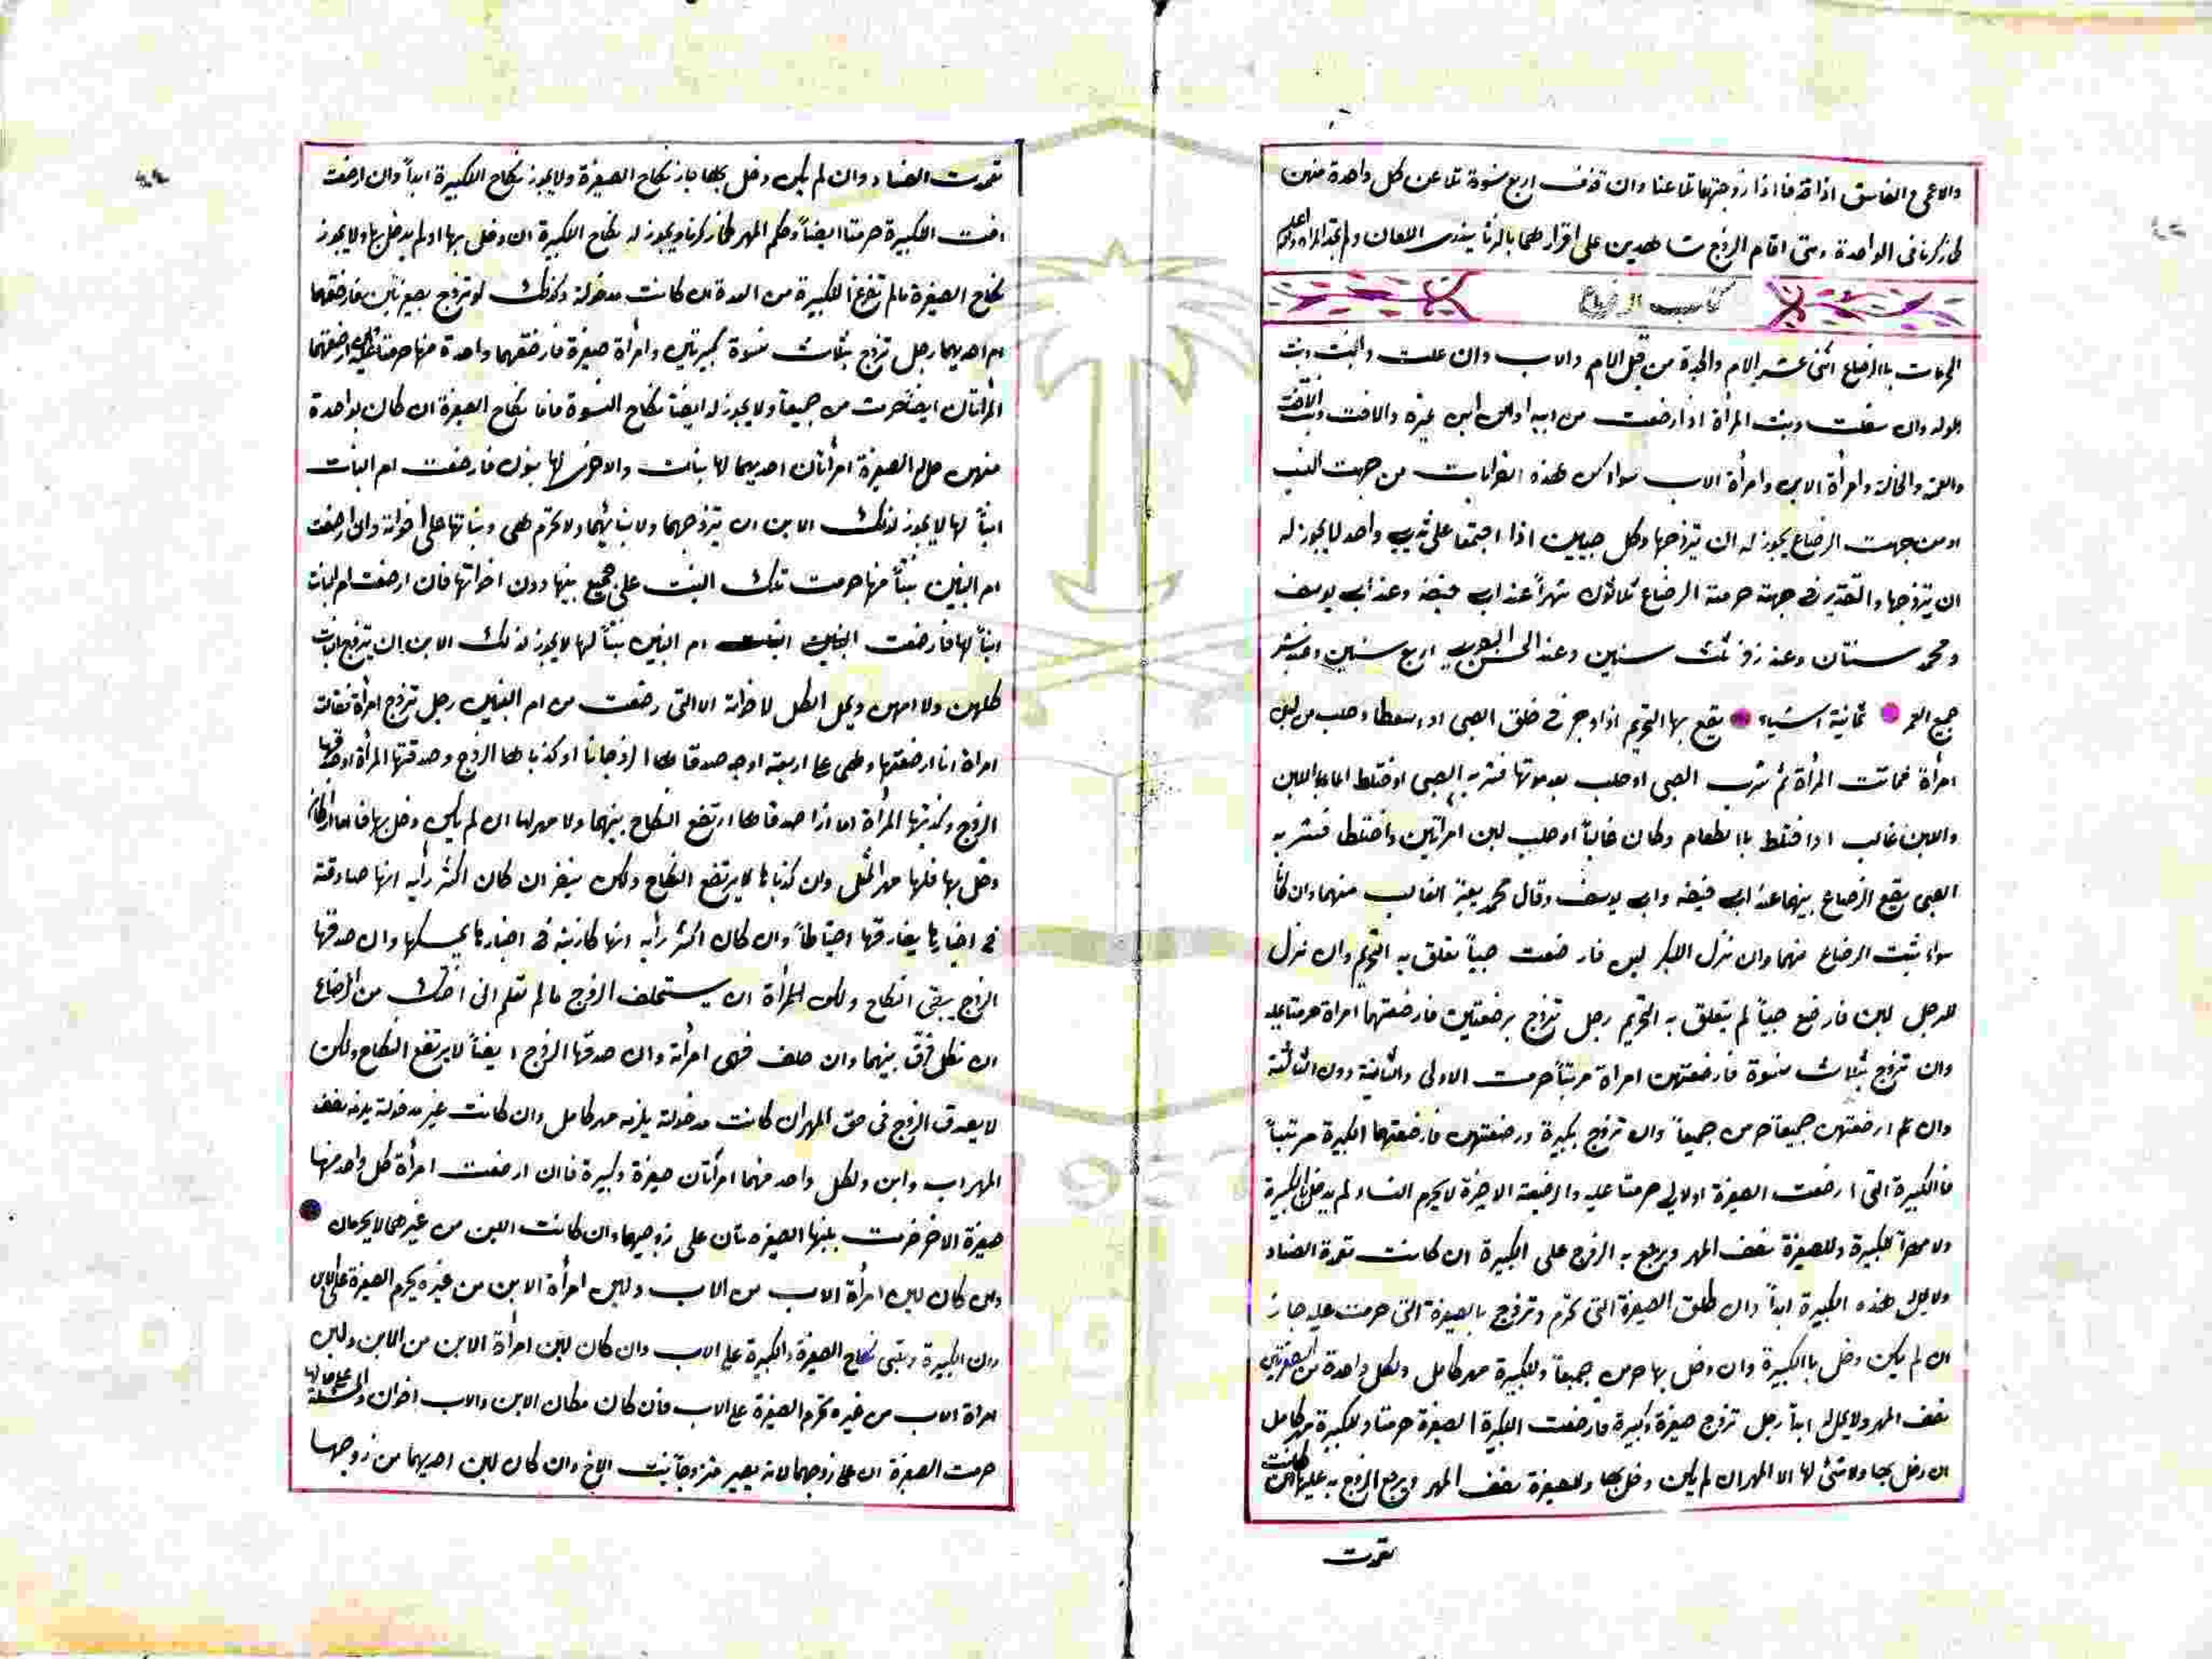 والاعمى والفاسق اذا قذفا اذا زوجتهما تلاعنا وان قذف اربع نسوة تلاعن كل واحدة منهن
كما ذكرنا فى الواحدة ومتى اقام الزوج شاهدين على اقرارهما بالزنا يندرى اللعان ولم تحد المراة والله اعلم
كتاب الرضاع
المحرمات باالرضاع اثنى عشر الام والجدة من قبل الام والاب وان علت والبنت وبنت
الولد وان سفلت وبنت المرأة اذا ارضعت من ابيه او من ابن غيره والاخت وبنت الاخت
والعمة والخالة وامرأة الابن وامرأة الاب سواء كن هذه القرابات من جهت النسب
او من جهت الرضاع يجوز له ان يتزوجها وكل صبيين اذا اجتمعا على ثدي واحد لا يجوز له
ان يتزوجها والتقدير فى جهته حرمته الرضاع ثلاثون شهراً عند ابى حنيفه وعند ابى يوسف
ومحمد سنتان وعند زفر ثلث سنين وعند الحسن البصرى اربع سنين وعند بشر
جميع العمر ثمانية اشياء يقع بها التحريم اذا وجر فى حلق الصبى او اسعطا وحلب من لبن
امرأة فماتت المرأة ثم شرب الصبى او حلب بعد موتها فشربه الصبى او ختلط الماء باللبن
واللبن غالب او اختلط باالطعام وكان غالباً او حلب لبن امراتين واختلطا فشربه
الصبى يقع الرضاع بينهما عند ابى حنيفه وابى يوسف وقال محمد يعتبر الغالب منهما وان كانا
سواء ثبت الرضاع منهما وان نزل للبكر لبن فارضعت صبياً تعلق به التحريم وان نزل
للرجل لبن فارضع صبياً لم يتعلق به التحريم رجل تزوج برضعتين فارضعتهما امراة حرمتا عليه
وان تزوج بثلاث نسوة فارضعتهن امراة مرتباً حرمت الاولى والثانية دون الثالثة
وان تم ارضعتهن جميعاً حرمن جميعاً وان تزوج بكبيرة ورضعتهن فارضعتهما الكبيرة مرتباً
فاالكبيرة التى ارضعت الصغيرة اولا لى حرمتا عليه والرضيعة الاخيرة لا يحرم النساء لم يدخل بالكبيرة
ولا مهراً للكبيرة وللصغيرة نصف المهر ويرجع به الزوج على الكبيرة ان كانت تعمدة الفساد
ولا يحل هذه الكبيرة ابداً وان طلق الصغيرة التى تحرم وتزوج بالصغيرة التى حرمت عليه جاز
ان لم يكن دخل باالكبيرة وان دخل بها حرمن جميعاً وللكبيرة مهر كامل ولكل واحدة من الصغيرتين
نصف المهر ولا يحل له ابداً رجل تزوج صغيرة وكبيرة فارضعت الكبيرة الصغيرة حرمتا وللكبيرة مهر كامل
ان دخل بها ولا شئ لها الا المهر ان لم يكن دخل بها وللصغيرة نصف المهر ويرجع الزوج به عليها ان كانت
تعمدت
تعمدت الفساد وان لم يكن دخل بها جاز نكاح الصغيرة ولا يجوز نكاح الكبيرة ابداً وان ارضعت
اخت الكبيرة حرمتا ايضاً وحكم المهر كما ذكرنا ويجوز له نكاح الكبيرة ان دخل بها او لم يدخل بها ولا يجوز
نكاح الصغيرة مالم تفرغ الكبيرة من العدة ان كانت مدخولة وكذلك لو تزوج بصغيرتين فارضعتهما
ام احديهما رجل تزوج بثلاث نسوة كبيرتين وامرأة صغيرة فارضعتهما واحدة منها حرمتا عليه ارضعتهما
المرأتان ايضاً حرمت من جميعاً ولا يجوز له ايضاً نكاح النسوة فاما نكاح الصغيرة ان كان بواحدة
منهن حل له الصغيرة امرأتان احديهما لها بنات والاخرى لها بنون فارضعت ام البنات
ابناً لها لا يجوز لذلك الابن ان يتزوجهما ولا بناتهما ولا تحرم هى وبناتها على اخوانه وان ارضعت
ام البنين بنتاً منها حرمت تلك البنت على جميع بنيها دون اخواتها فان ارضعت ام البنات
ابناً لها فارضعت ام البنين بنتاً لها لا يجوز لذلك الابن ان يتزوج البنات
كلهن ولا امهن ويحل الكل لاخوانه الا التى رضعت من ام البنين رجل تزوج امرأة فقالت
امراة انا ارضعتهما وهى على اربعة اوجه صدقاها الزوجانا او كذباها الزوج وصدقتها المرأة او صدقها
الزوج وكذبتها المرأة اما اذا صدقاها ارتفع النكاح بينهما ولا مهر لها ان لم يكن دخل بها فاما ان كان
دخل بها فلها مهر المثل وان كذباها لا يرتفع النكاح ولكن ينظر ان كان اكثر رأيه انها صادقة
فى اخبارها يفارقها احتياطاً وان كان اكثر رأيه انها كاذبة فى اخبارها يمسكها وان صدقها
الزوج يبقى النكاح ولكن للمرأة ان يستحلف الزوج مالم تعلم انى اختك من الرضاع
ان نكل فرق بينهما وان حلف فهى امرأته وان صدقها الزوج ايضاً لا يرتفع النكاح ولكن
لا يصدق الزوج فى حق المهر ان كانت مدخولة يلزمه مهر كامل وان كانت غير مدخولة يلزمه نصف
المهر اب وابن ولكل واحد منهما امرأتان صغيرة وكبيرة فاان ارضعت امرأة كل واحد منهما
صغيرة الاخر حرمت بلبنها الصغيره تان على زوجيهما وان كانت اللبن من غيرهما لا يحرمان
وان كان لبن امرأة الاب من الاب ولبن امرأة الابن من غيره يحرم الصغيرة على الابن
دون الكبيرة ويبقى نكاح الصغيرة والكبيرة على الاب وان كان لبن امرأة الابن من الابن ولبن
امراة الاب من غيره تحرم الصغيرة على الاب فان كان مكان الابن والاب اخوان والمسئلة على حالها
حرمت الصغيرة ان على زوجهما لانه يصير متزوجاً بنت الاخ وان كان لبن احديهما من زوجها